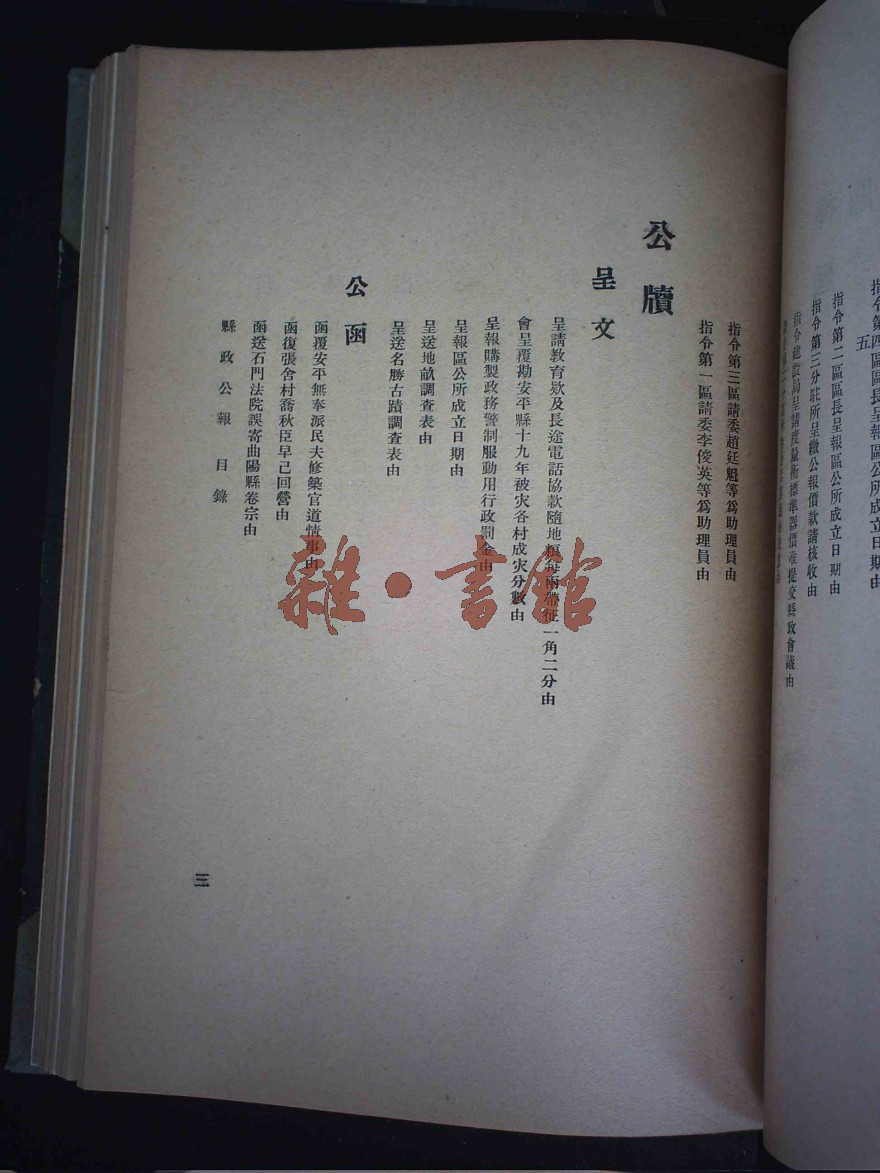 五
指令第四區區長呈報區公所成立日期由
指令第二區區長呈報區公所成立日期由
指令第三分駐所呈繳公報價款請核收由
指令建設局呈請度量衡標準器價准提交縣政會議由
指令第三區請委趙廷魁等爲助理員由
指令第一區請委李俊英等爲助理員由
公牘
呈文
呈請教育欵及長途電話協款隨地糧每兩帶征一角二分由
會呈覆勘安平縣十九年被灾各村成灾分數由
呈報購製政務警制服動用行政罰金由
呈報區公所成立日期由
呈送地畝調查表由
呈送名勝古蹟調查表由
公函
函覆安平無奉派民夫修築官道情事由
函復張舍村喬秋臣早已回營由
函送石門法院誤寄曲陽縣卷宗由
縣政公報 目錄
三
雜·書館